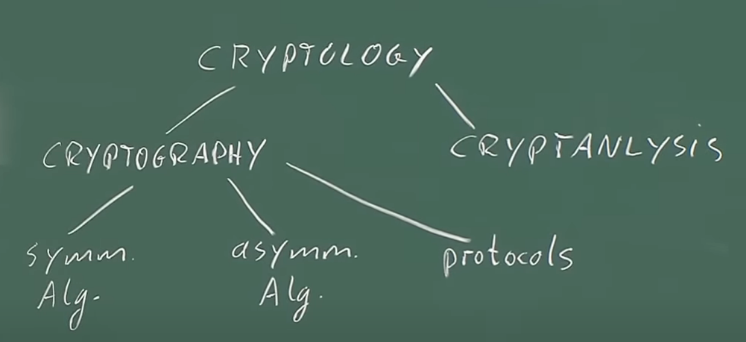 CRYPTOLOGY
CRYPTOGRAPHY
CRYPTANLYSIS
symm.
Alg.
asymm.
Alg.
protocols